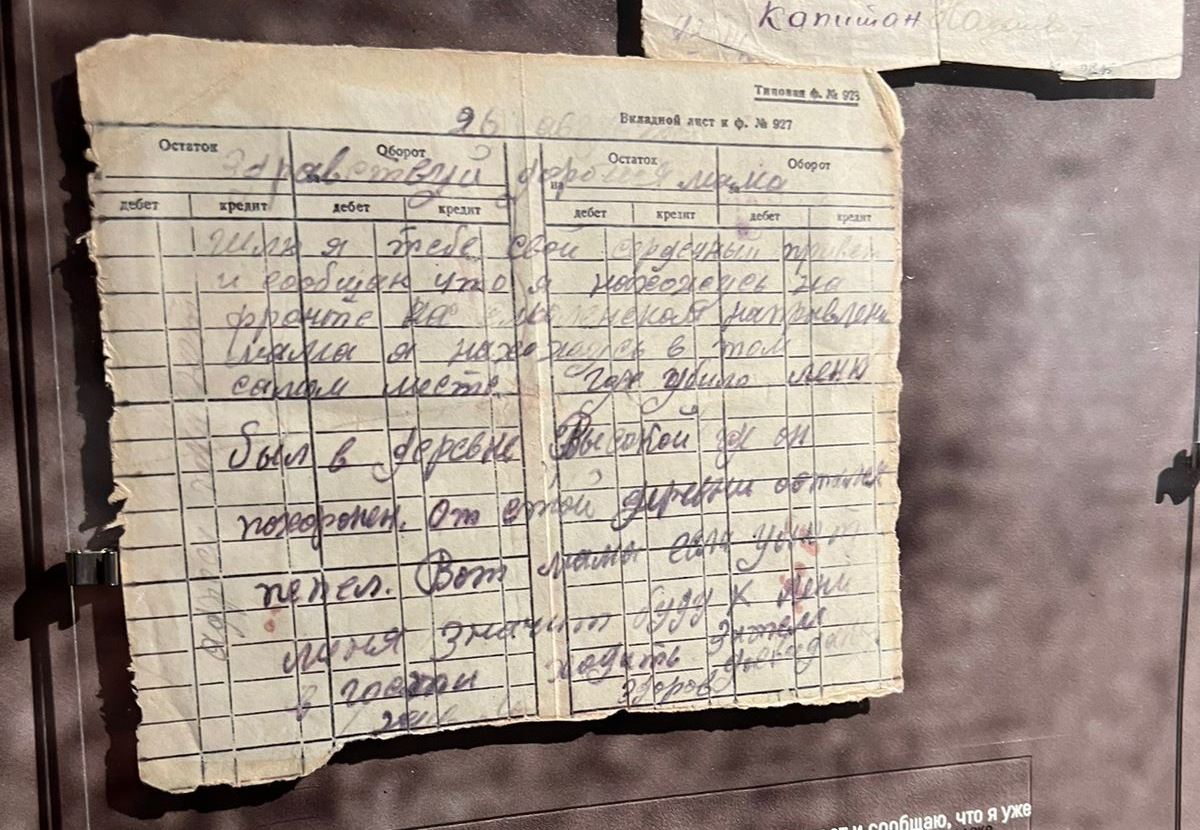 Капитан
Типовая ф. № 923
Вкладной лист к ф. № 927
26
Остаток Оборот Остаток Оборот
Здравствуй дорогая мама
на
дебет кредит дебет кредит дебет кредит дебет кредит
Шлю я тебе свой сердечный привет
и сообщаю что я нахожусь на
фронте на смоленском направлени
мама я нахожусь в том
самом месте. где убило леню
был в деревне Высокой где он
похоронен. От этой деревни остался
пепел. Вот мама если убьют
меня значит буду к лени
в гости ходить Энтем
здоров
т и сообщаю, что я уже